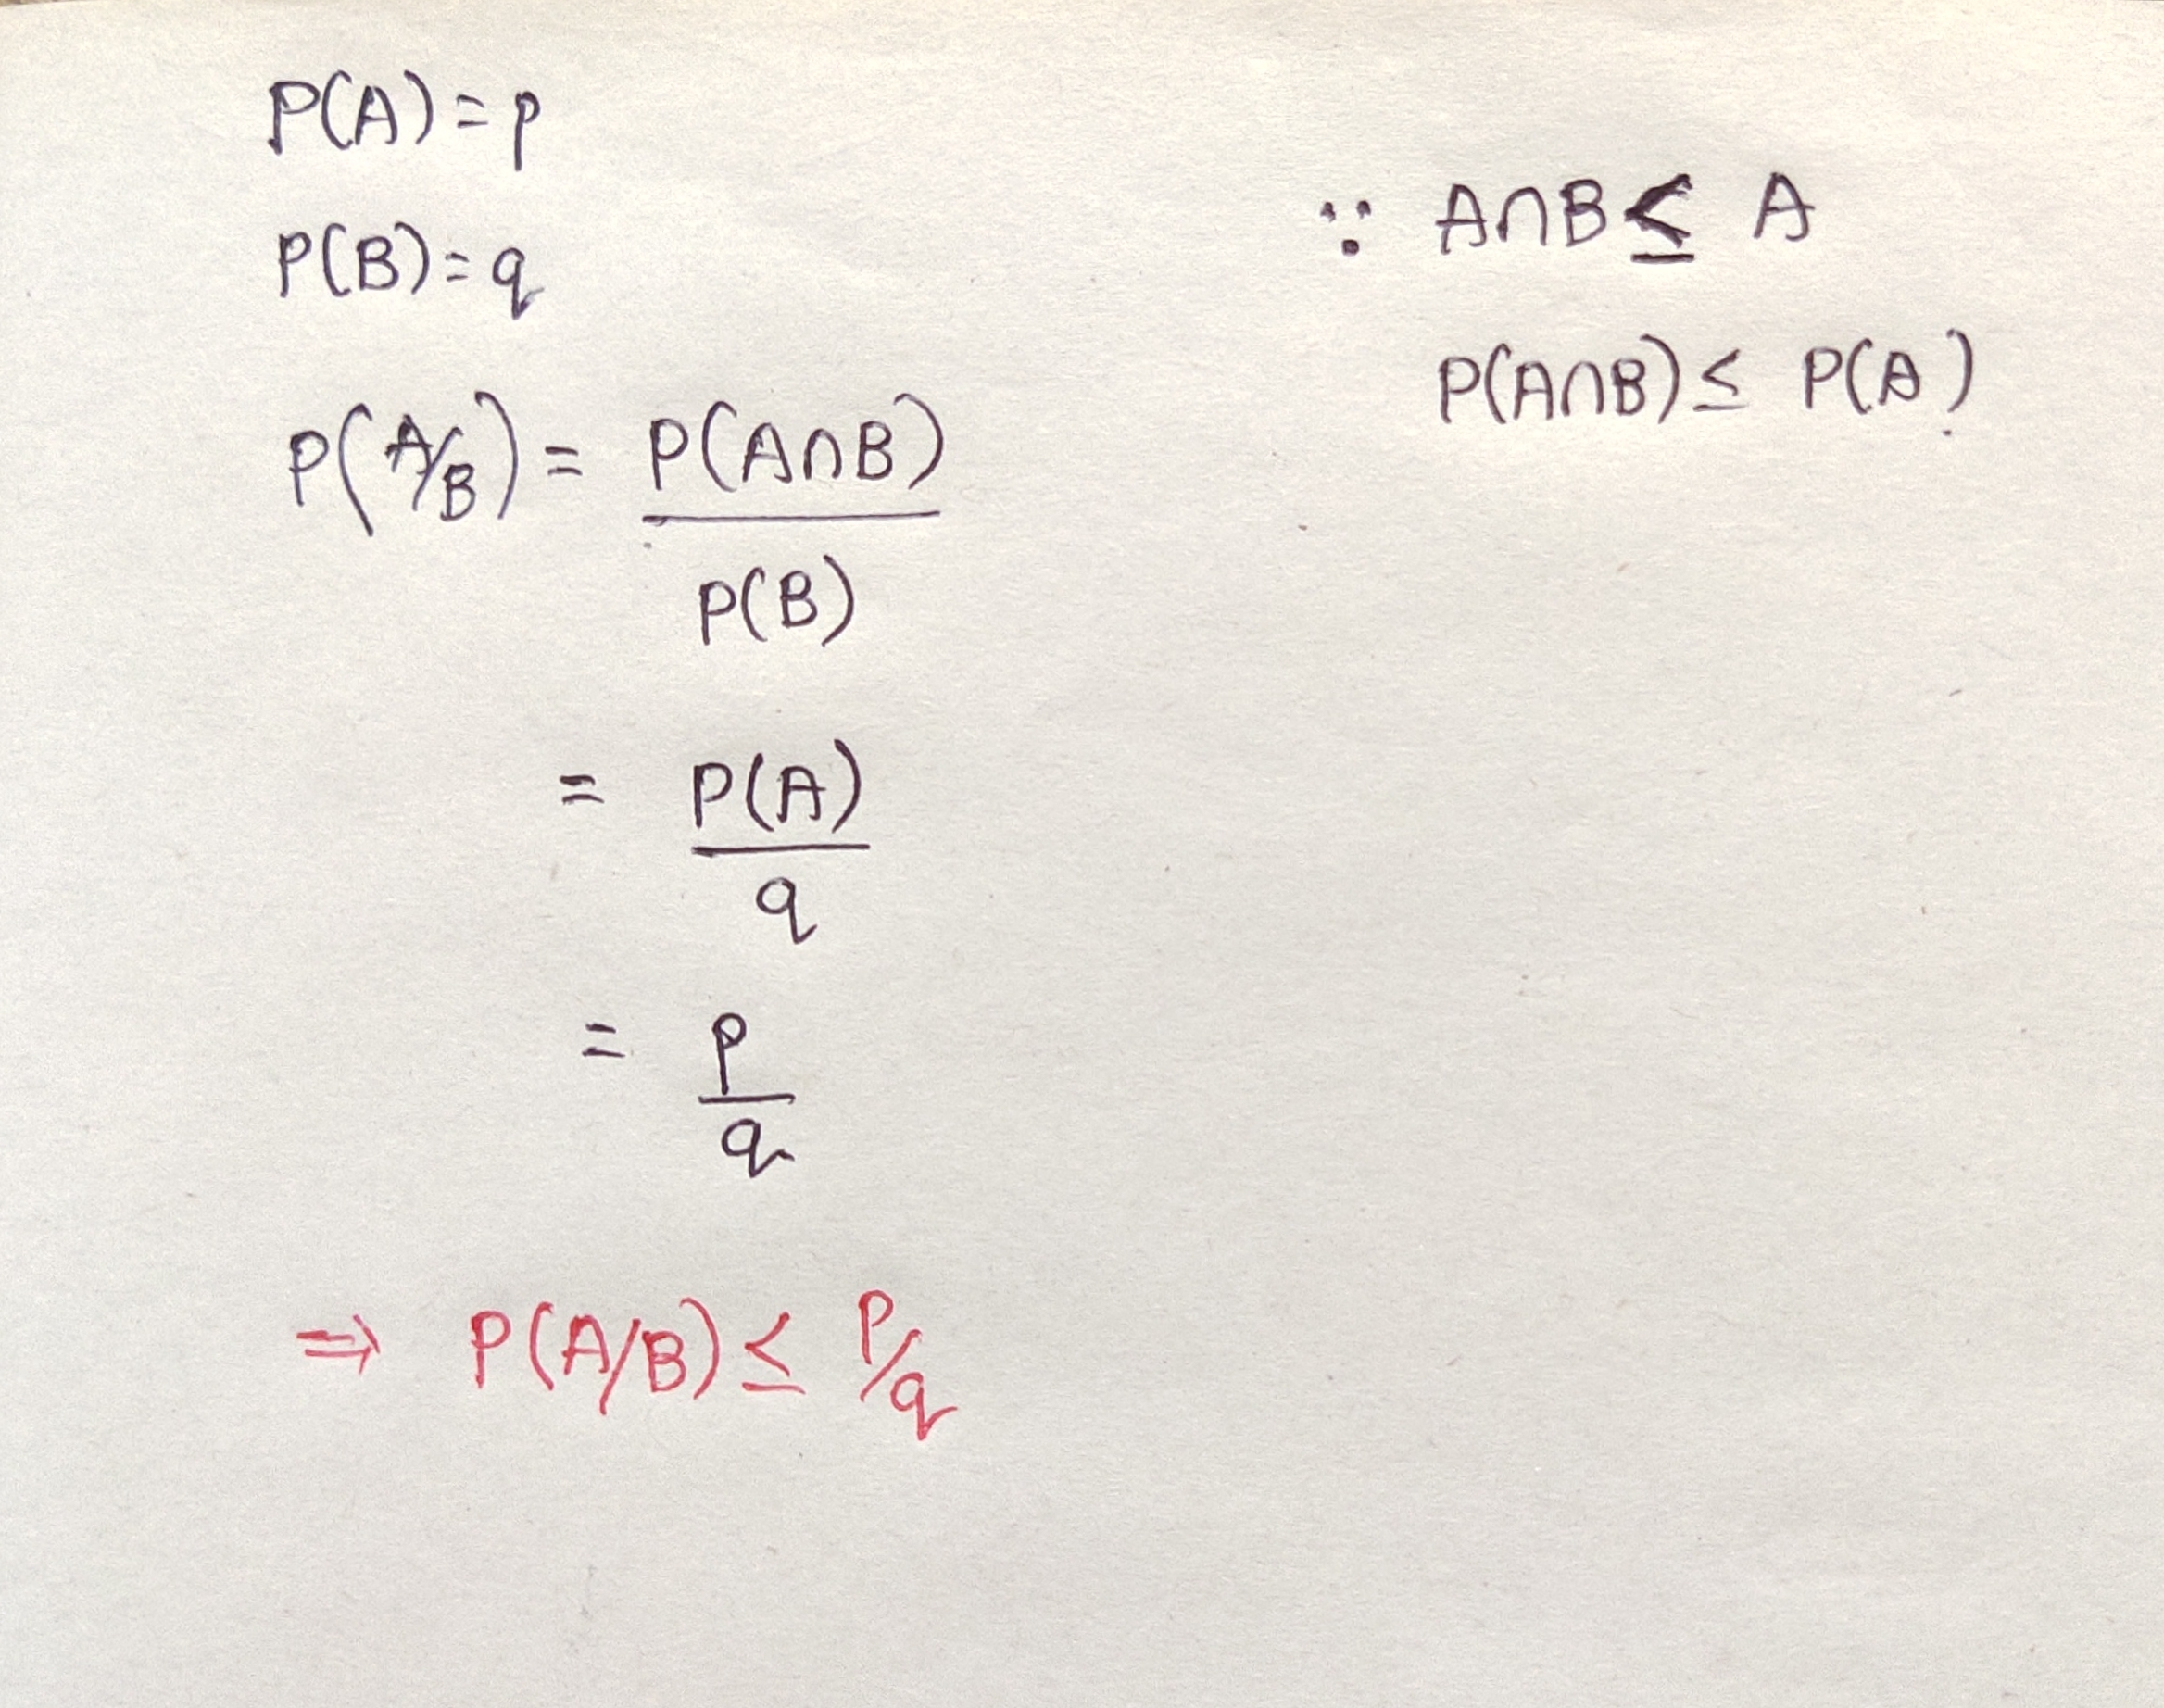 P(A) = p
P(B) = q
P(A/B) = P(A∩B)
P(B)
= P(A)
q
= p
q
⇒ P(A/B) ≤ P/q
∵ A∩B ≤ A
P(A∩B) ≤ P(A)